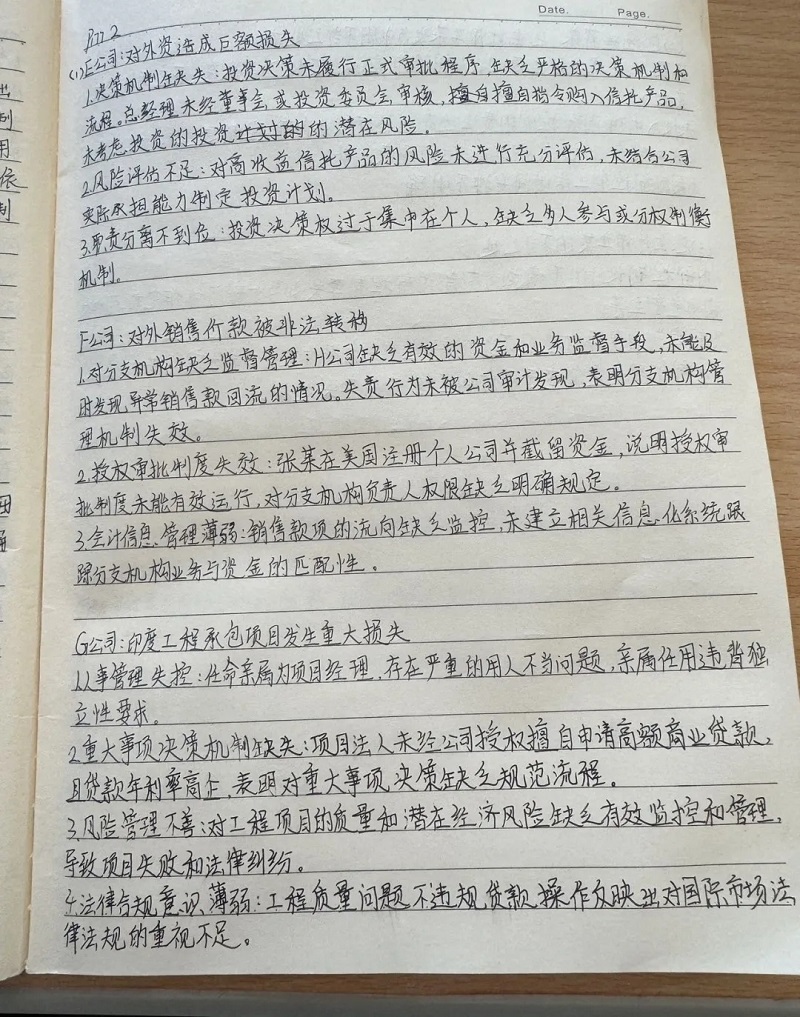 Date. Page.
P72.2
(1)E公司:对外资造成巨额损失
1.决策机制缺失:投资决策未履行正式审批程序,缺乏严格的决策机制和
流程。总经理未经董事会或投资委员会审核,擅自擅自指令购入信托产品,
未考虑投资的投资计划的的潜在风险。
2.风险评估不足:对高收益信托产品的风险未进行充分评估,未结合公司
实际承担能力制定投资计划。
3.职责分离不到位:投资决策权过于集中在个人,缺乏多人参与或分权制衡
机制。
F公司:对外销售价款被非法转移
1.对分支机构缺乏监督管理:H公司缺乏有效的资金和业务监督手段,未能及
时发现异常销售款回流的情况。失责行为未被公司审计发现,表明分支机构管
理机制失效。
2.授权审批制度失效:张某在美国注册个人公司并截留资金,说明授权审
批制度未能有效运行,对分支机构负责人权限缺乏明确规定。
3.会计信息管理薄弱:销售款项的流向缺乏监控,未建立相关信息化系统跟
踪分支机构业务与资金的匹配性。
G公司:印度工程承包项目发生重大损失
1.人事管理失控:任命亲属为项目经理,存在严重的用人不当问题,亲属任用违背独
立性要求。
2.重大事项决策机制缺失:项目法人未经公司授权擅自申请高额商业贷款,
且贷款年利率高企,表明对重大事项决策缺乏规范流程。
3.风险管理不善:对工程项目的质量和潜在经济风险缺乏有效监控和管理,
导致项目失败和法律纠纷。
4.法律合规意识薄弱:工程质量问题不违规贷款操作反映出对国际市场法
律法规的重视不足。
出
制
用
依
制